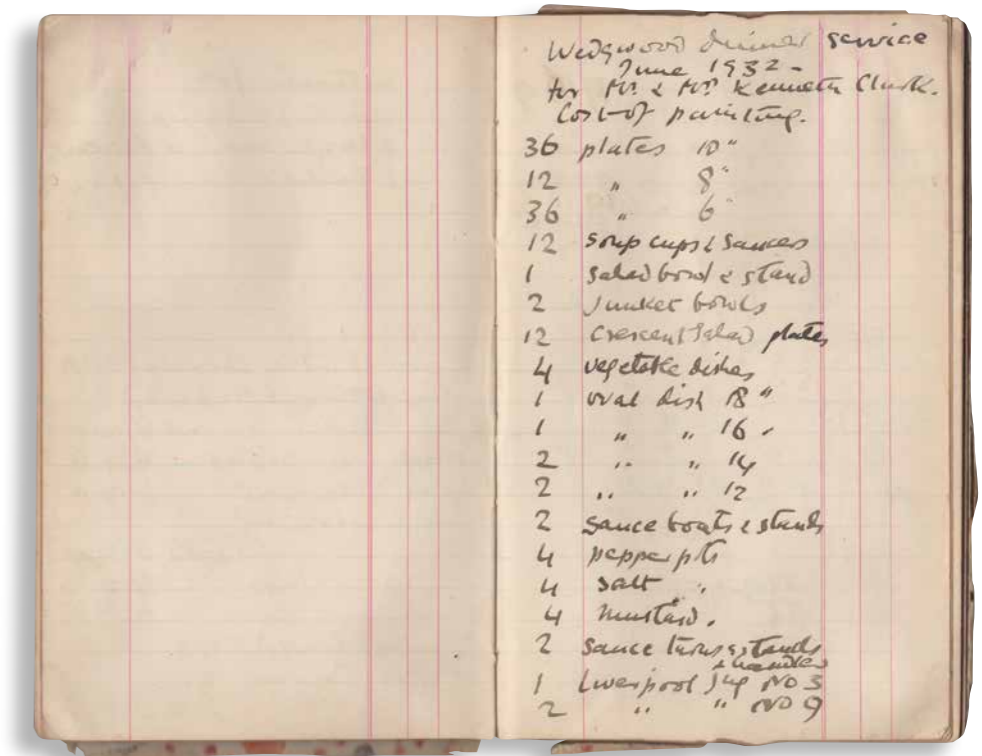 Wedgwood dinner service
June 1932 -
for Mr. & Mrs. Kenneth Clark.
Cost of painting.
36 plates 10"
12 " 8"
36 " 6"
12 soup cups & saucers
1 salad bowl & stand
2 junket bowls
12 crescent salad plates
4 vegetable dishes
1 oval dish 18"
1 " " 16"
2 " " 14
2 " " 12
2 sauce boats & stands
4 pepper pots
4 salt "
4 mustard "
2 sauce turns & stands
& handles
1 Liverpool jug No 3
2 " " No 9